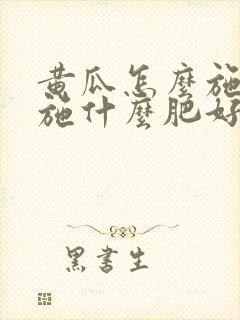 黄瓜怎麼施
施什麼肥好
黑書生